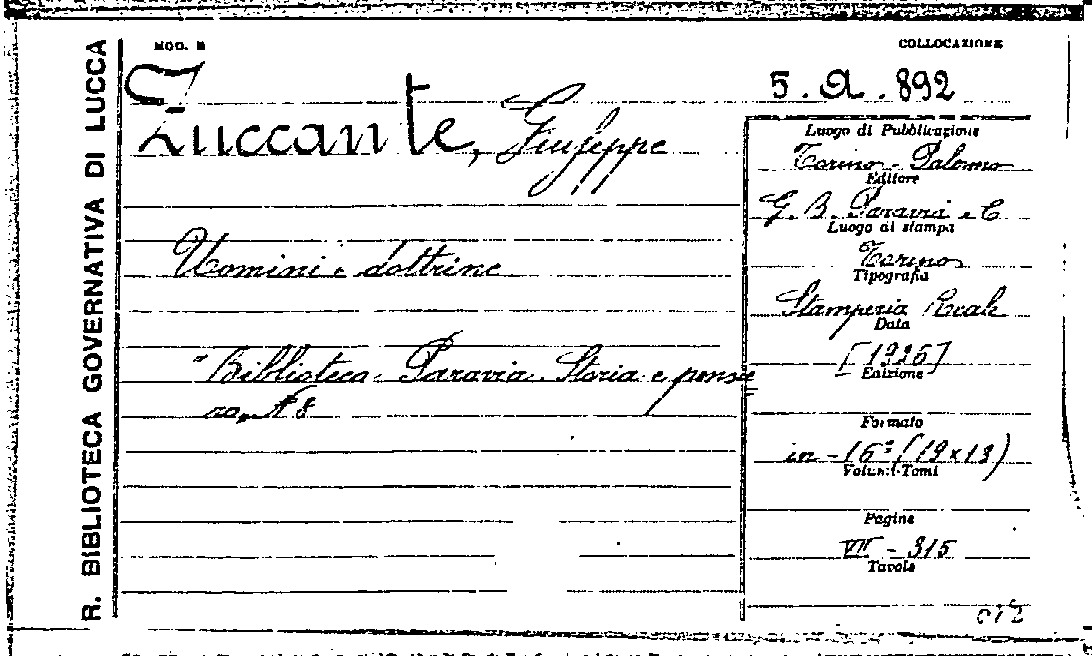 R. BIBLIOTECA GOVERNATIVA DI LUCCA
MOD. B
COLLOCAZIONE
5. A. 892
Zuccante, Giuseppe
Uomini e dottrine
"Biblioteca Paravia Storia e pensie
ro, N 8
Luogo di Pubblicazione
Torino - Palermo
Editore
G. B. Paravia e C
Luogo di stampa
Torino
Tipografia
Stamperia Reale
Data
[1926]
Edizione
Formato
in - 16° (19×13)
Volumi-Tomi
Pagine
VII - 315
Tavole